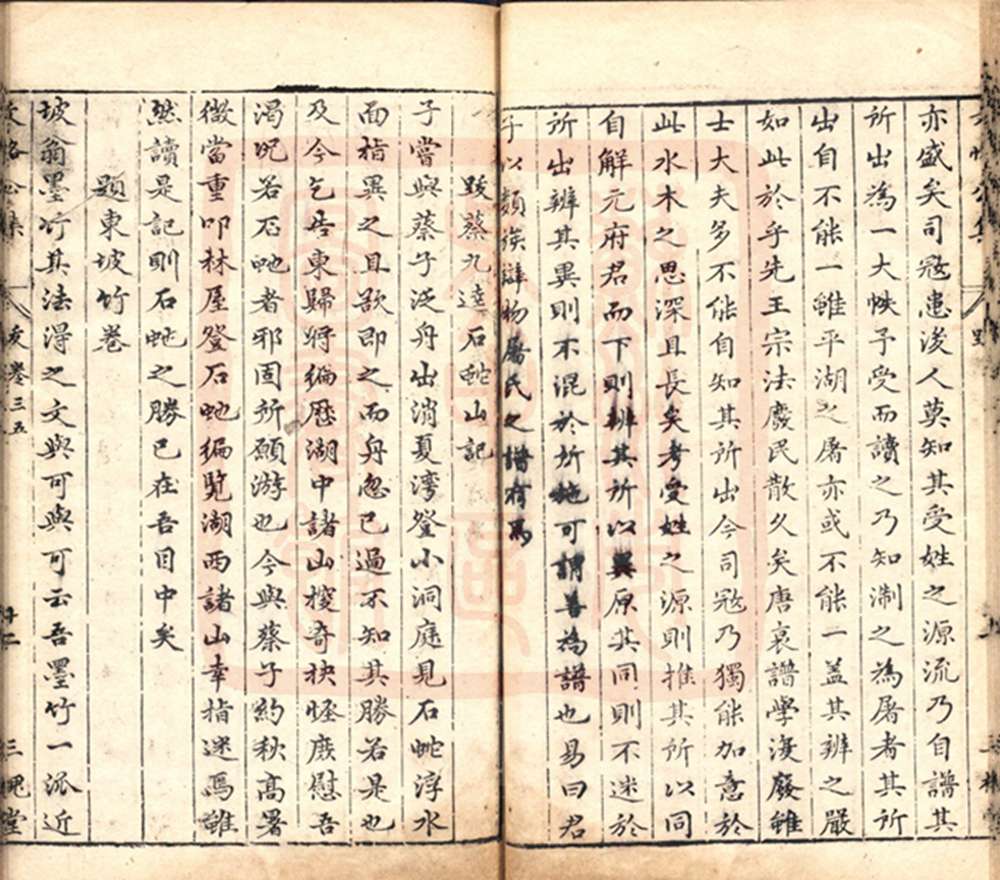 亦盛矣司寇患後人莫知其受姓之源流乃自譜其
所出為一大帙予受而讀之乃知制之為屠者其所
出自不能一雖平湖之屠亦或不能一盖其辨之嚴
如此於乎先王宗法廢民散久矣唐衰譜學浸廢雖
士大夫多不能自知其所出今司寇乃獨能加意於
此水木之思深且長矣考受姓之源則推其所以同
自解元府君而下則辨其所以異原其同則不迷於
所出辨其異則不混於所施可謂善為譜也易曰君
子以類族辯物屠氏之譜有焉
跋蔡九逵石虵山記
子嘗與蔡子泛舟出消夏湾登小洞庭見石虵浮水
面指異之且欲即之而舟忽已過不知其勝若是也
及今乞告東歸将徧歷湖中諸山搜奇抉怪庶慰吾
渴况若石虵者邪固所願游也今與蔡子約秋高暑
微當重叩林屋登石虵徧覽湖西諸山幸指迷焉雖
然讀是記則石虵之勝已在吾目中矣
題東坡竹卷
坡翁墨竹其法得之文與可與可云吾墨竹一派近
文恪公集
友卷三五
三槐堂